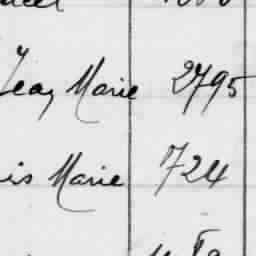 Jean Marie 2795
is Marie 724